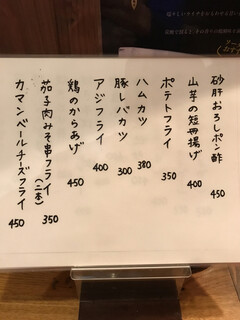 砂肝おろしポン酢 450
山芋の短冊揚げ 400
ポテトフライ 350
ハムカツ 380
豚レバカツ 300
アジフライ 400
鶏のからあげ 450
茄子肉みそ串フライ(二本) 350
カマンベールチーズフライ 450